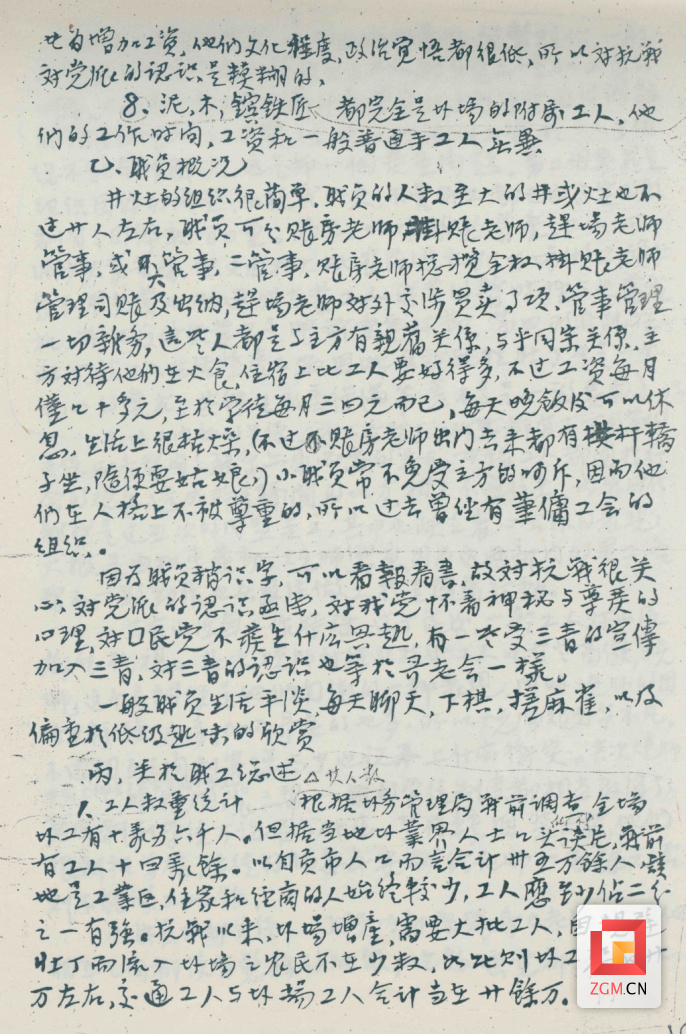 增加工资,他们文化程度,政治觉悟都很低,所以对抗战
对党派的认识是模糊的。
8、泥,木,铁匠 都完全是坏场的附属工人,他
们的工作时间,工资和一般普通手工人无异
乙、职员概况
井灶的组织很简单,职员的人数至大的井或灶也不
过廿人左右,职员可分账房老师,掛账老师,趕場老师
管事,或大管事,二管事,账房老师总揽全权,掛账老师
管理司账及出纳,趕场老师对外交涉買卖事项,管事管理
一切雜务,這些人都是与主方有親舊关係,与乎同宗关係,主
方对待他们在火食,住宿上比工人要好得多,不过工资每月
僅八十多元,至於学徒每月三四元而已,每天晚飯后可以休
息,生活上很枯燥,(不过账房老师出门去来都有杆轎
子坐,随便耍姑娘,)小职员常不免受主方的呵斥,因而他
们在人格上不被尊重的,所以过去曾经有華傭工会的
组织。
因为职员稍识字,可以看報看書,故对抗战很关
心,对党派的认识,对我党怀着神秘与尊羨的
心理,对口民党不發生什広兴趣,有一些受三青的宣傳
加入三青,对三青的认识也等於哥老会一樣。
一般职员生活平淡,每天聊天,下棋,搓麻雀,以及
偏重於低级趣味的欣赏
丙,关於职工总述 △廿人数
1、工人数量统计 根据坏务管理局战前调查全場
坏工有十乘另六千人。但据当地坏業界人士口头谈及,战前
有工人十四萬餘。以自贡市人口而言合计卅五万餘人,
地是工業区,住家和经商的人始终較少,工人應至少佔二分
之一有强。抗战以来,坏場增產,需要大批工人,
壮丁而流入坏場之农民不在少数,以此则坏工
万左右,交通工人与坏場工人合计当在廿餘万。
ZGM.CN